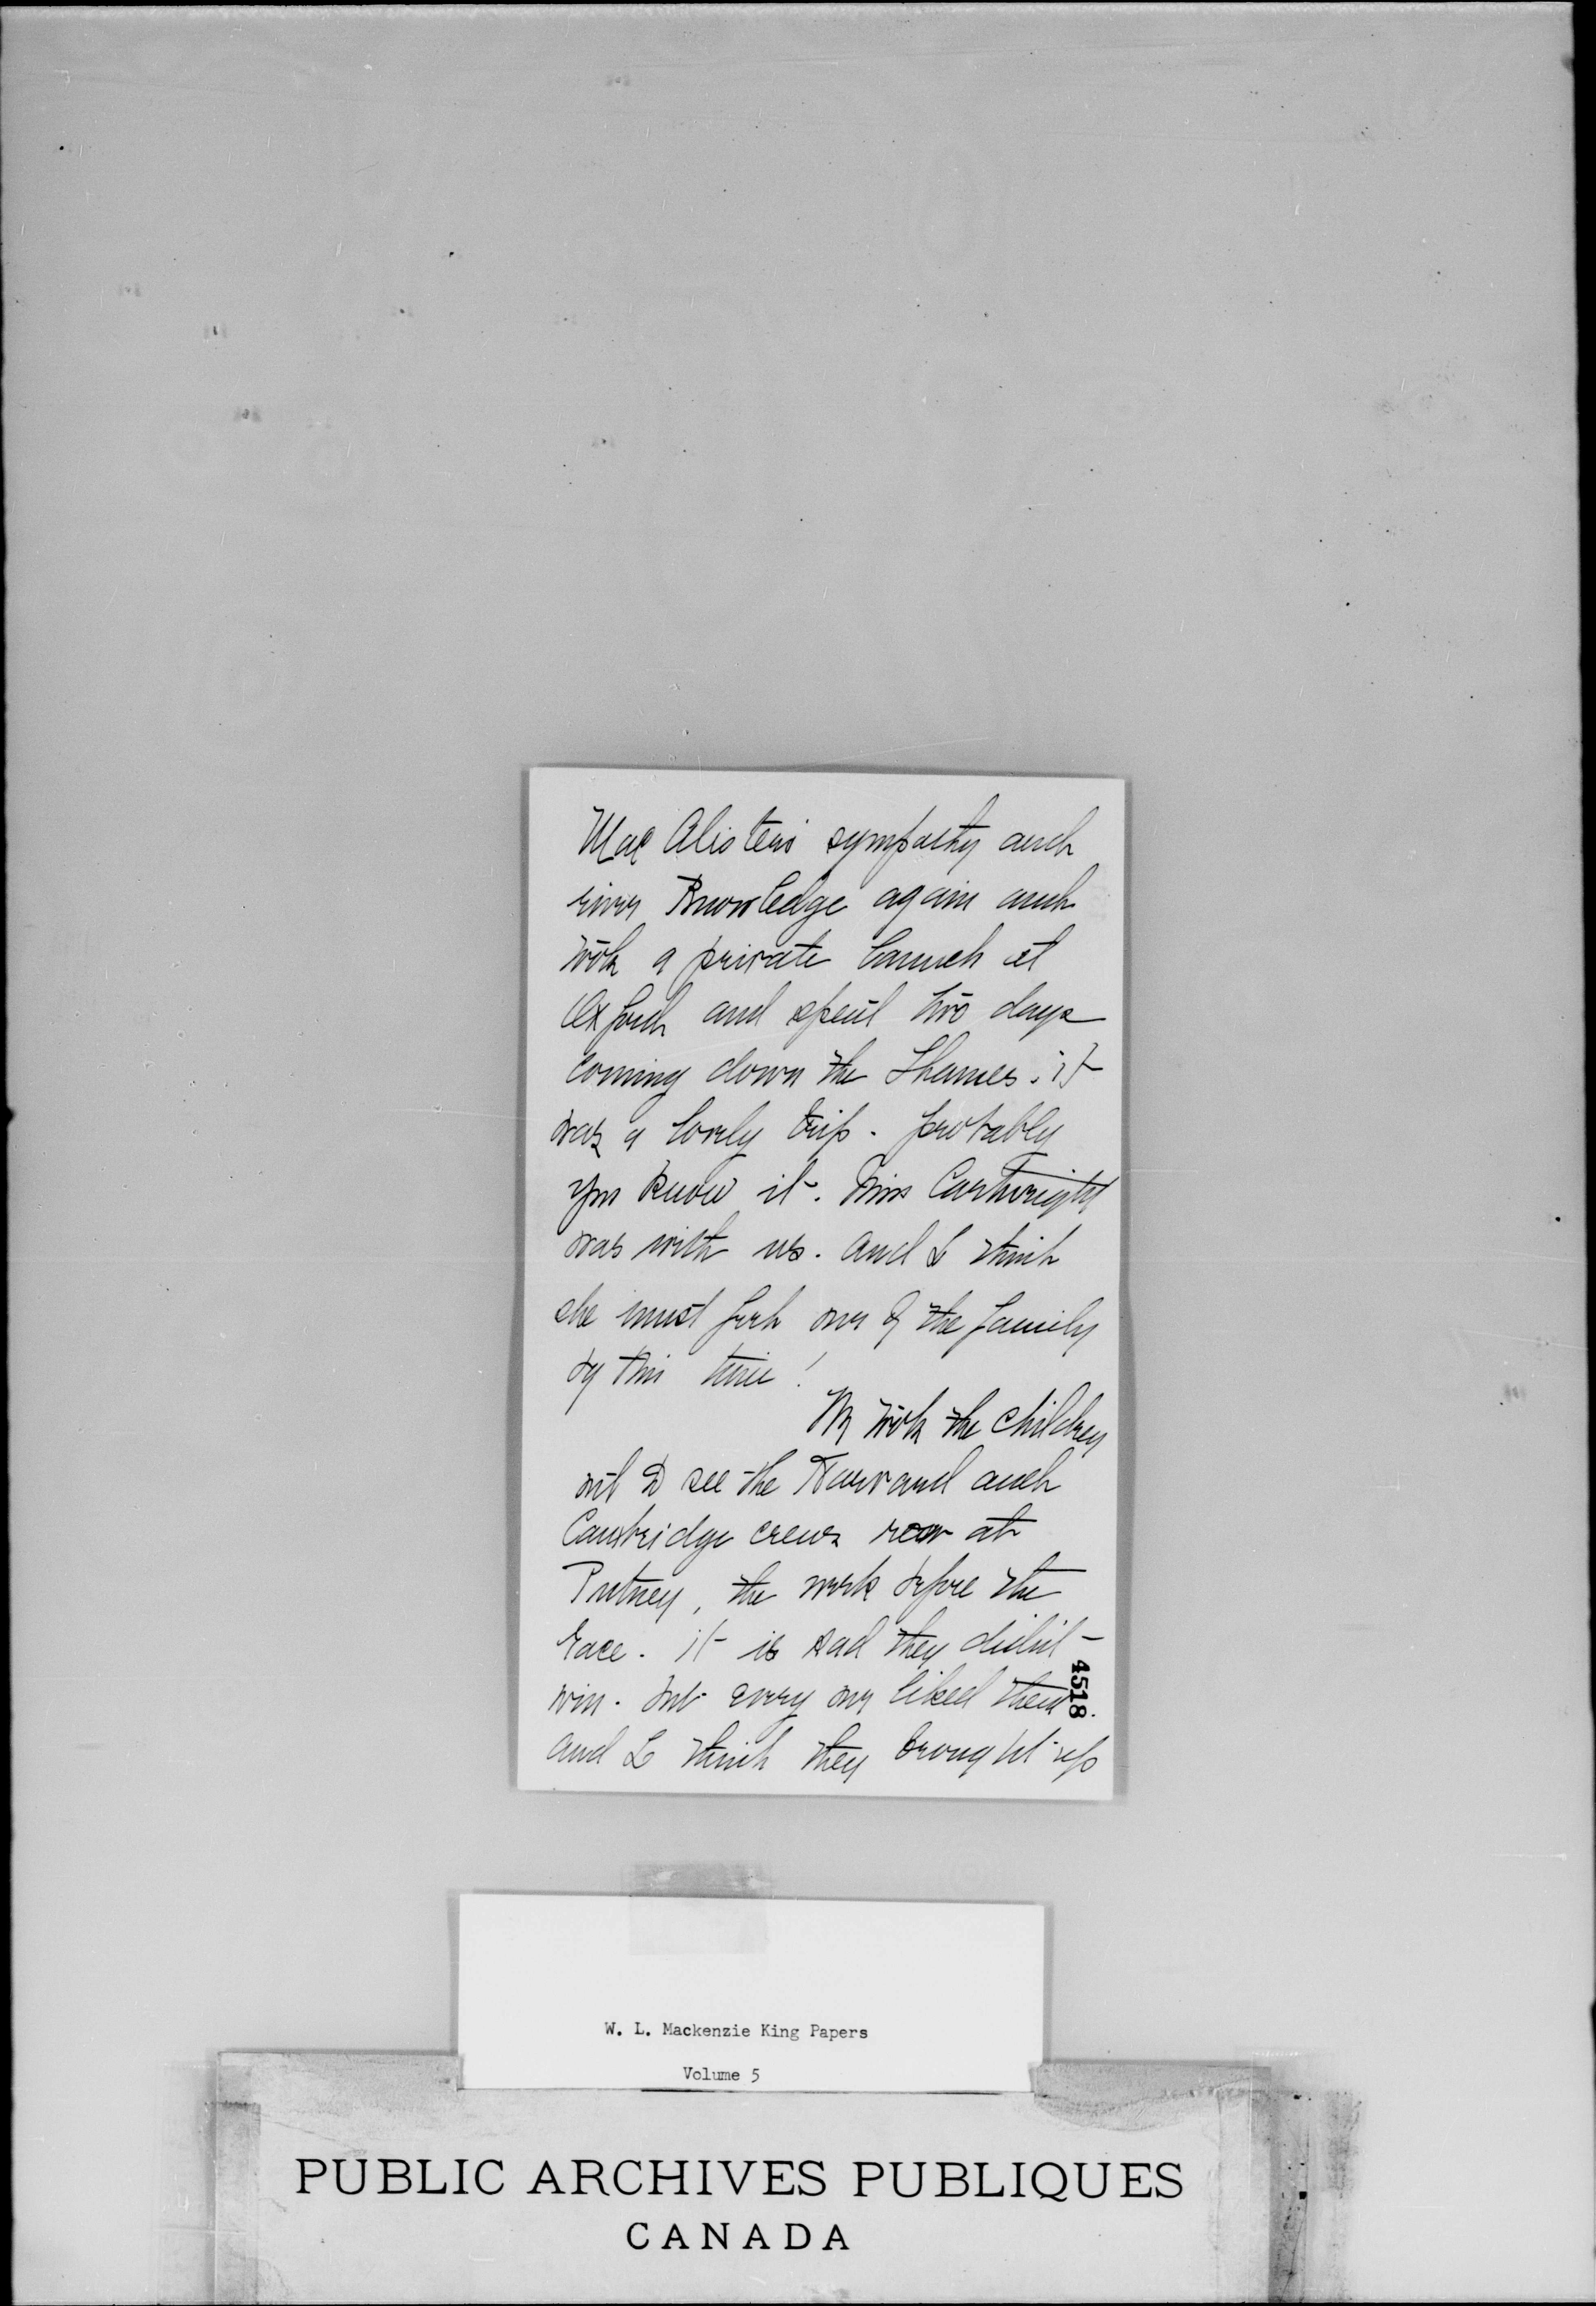 MacAlister's sympathy and
river knowledge again and
took a private launch at
Oxford and spent two days
coming down the Thames. it
was a lovely trip. probably
you know it. Miss Cartwright
was with us. and I think
she must feel one of the family
by this time!
We took the children
out to see the Harvard and
Cambridge crews row at
Putney, the week before the
race. it is sad they didn't
win. but every one liked them.
and I think they brought up
4518
W. L. Mackenzie King Papers
Volume 5
PUBLIC ARCHIVES PUBLIQUES
CANADA